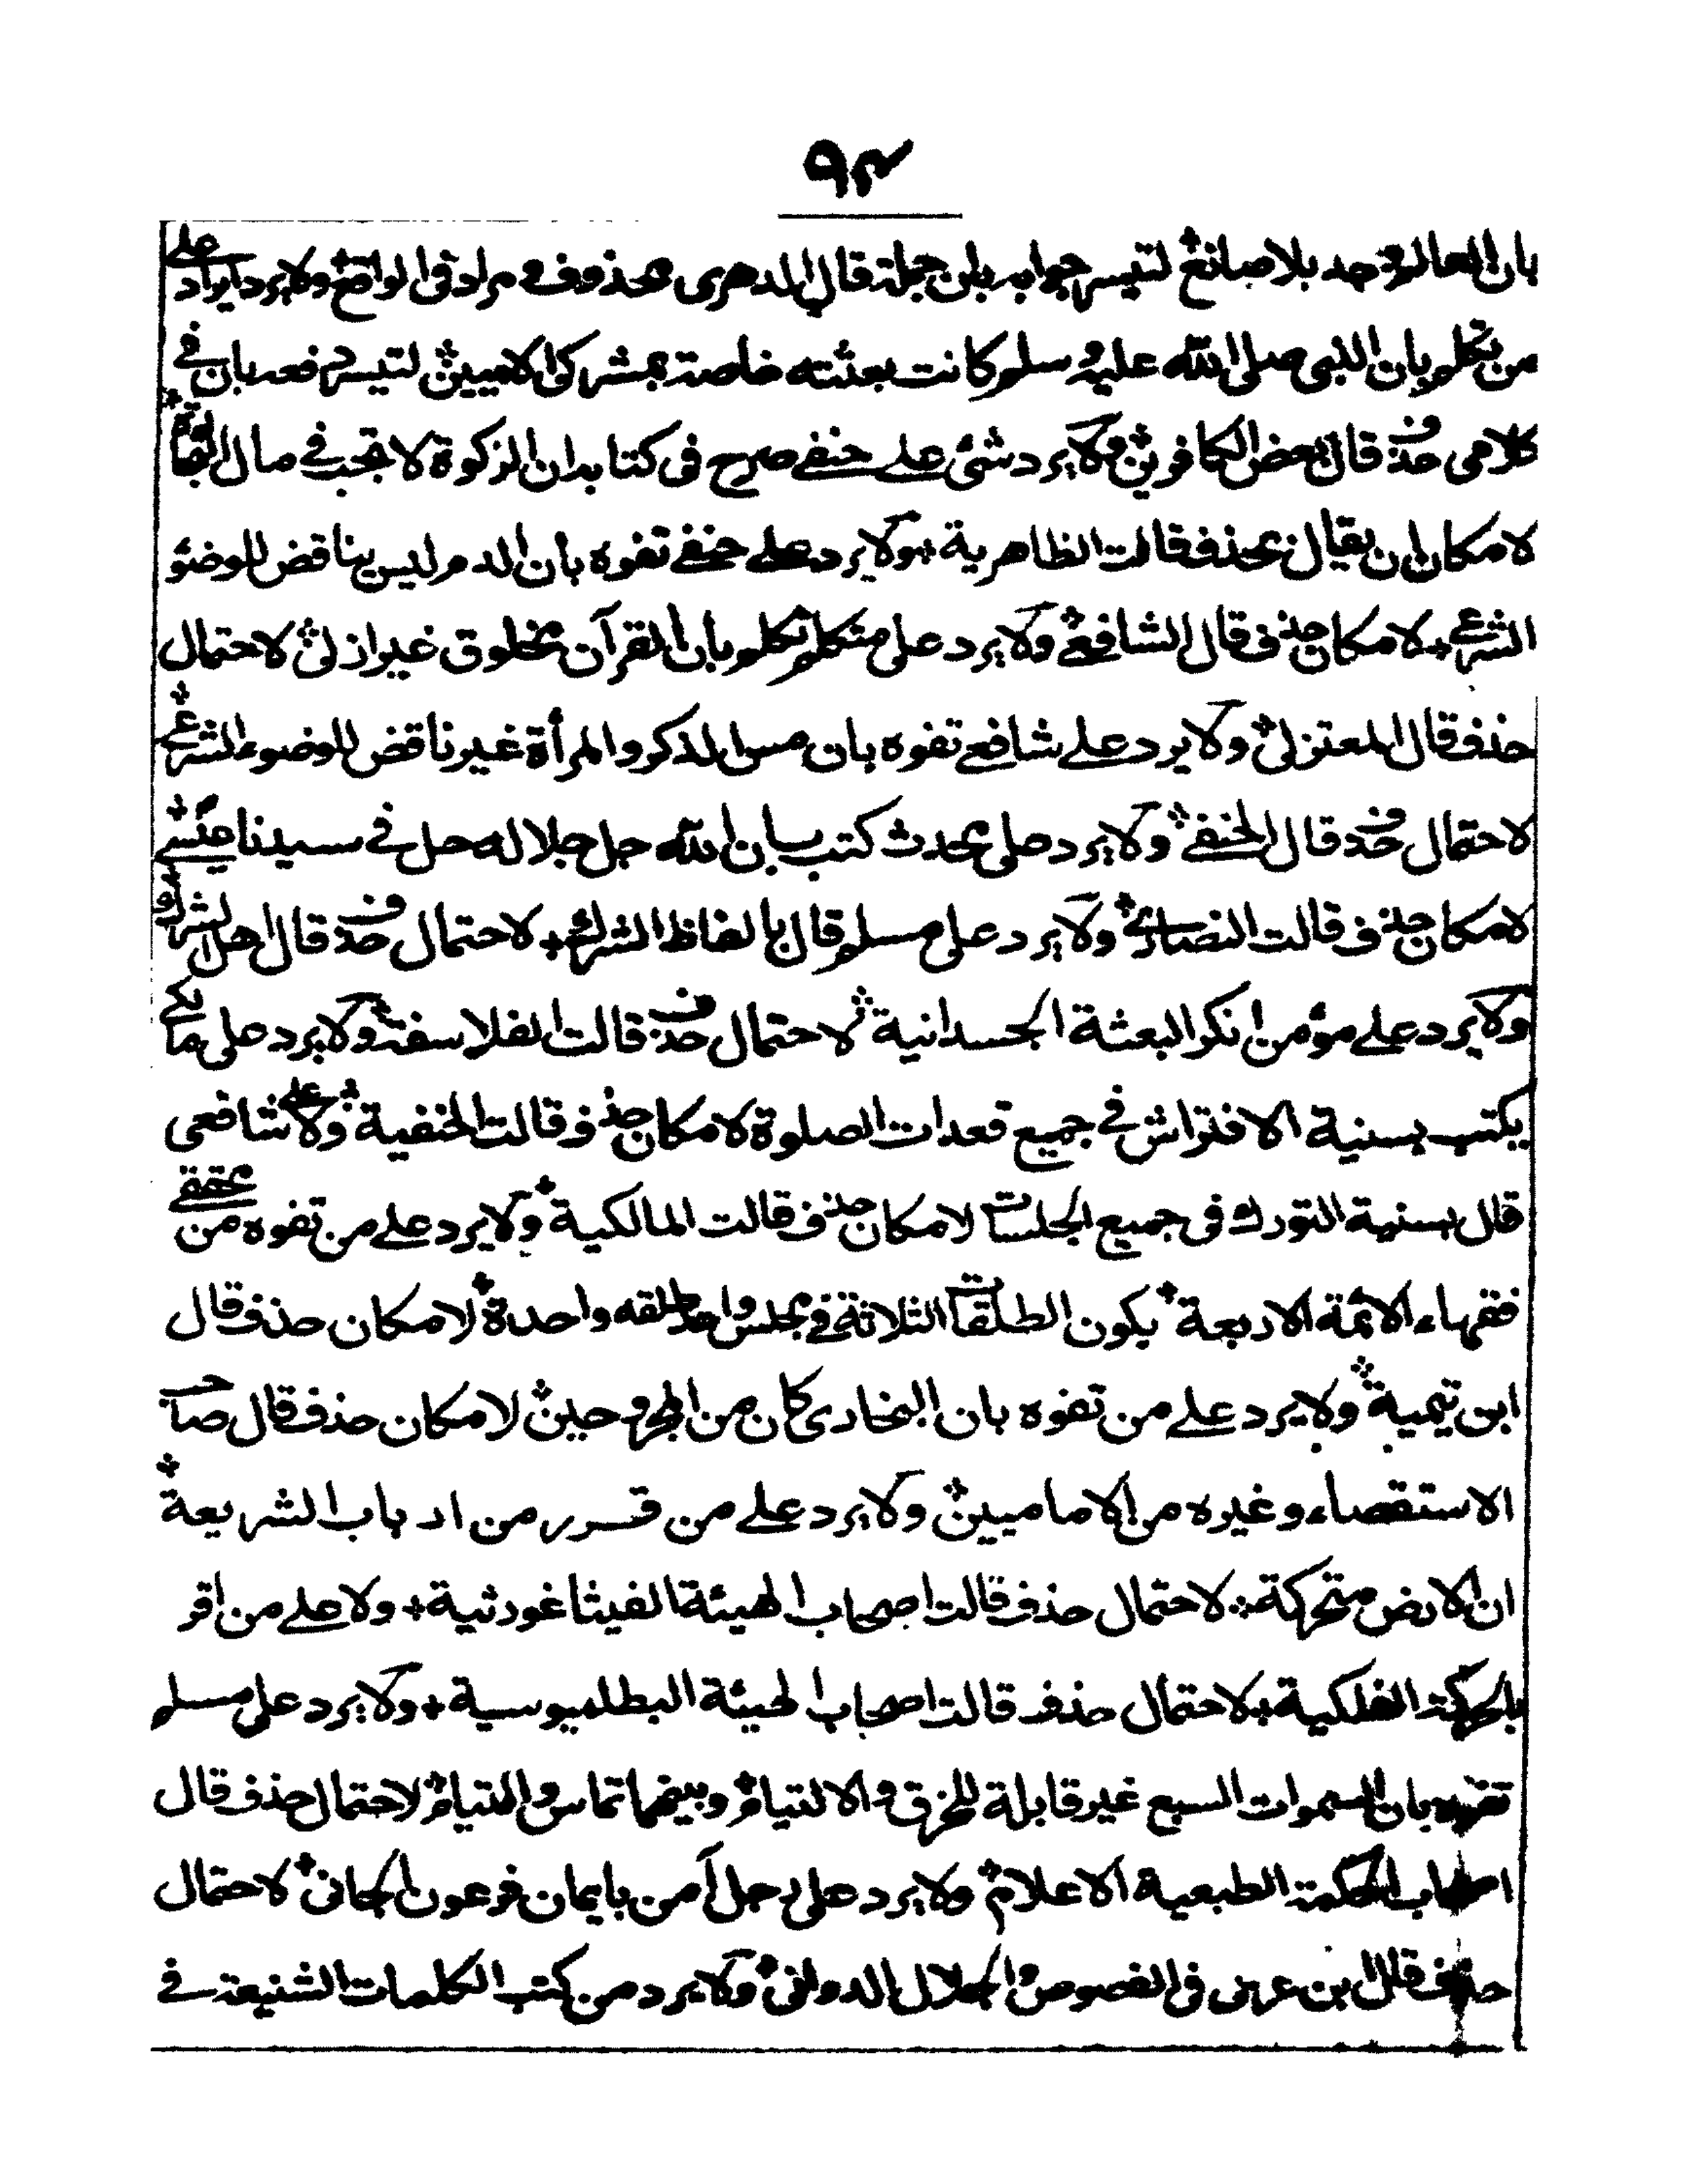 ٩٤
بان العالم وجد بلا صانع لتيسر جوابه بان جملة قال الدهري محذوف و مراد فى الواقع ولا يرد ايراد على
من تكلم بان النبى صلى الله عليه وسلم كانت بعثته خاصة بمشركى الاميين لتيسر دفعه بان فى
كلامى حذف قال بعض الكافرين ولا يرد شئ على حنفى صرح فى كتابه ان الزكوة لا تجب فى مال التجارة
لامكان ان يقال بحذف قالت الظاهرية ولا يرد على حنفى تفوه بان الدم ليس بناقض للوضوء
الشرعى لامكان حذف قال الشافعى ولا يرد على متكلم تكلم بان القرآن مخلوق غير ازلى لاحتمال
حذف قال المعتزلى ولا يرد على شافعى تفوه بان مس الذكر والمرأة غير ناقض للوضوء الشرعى
لاحتمال حذف قال الحنفى ولا يرد على محدث كتب بان الله جل جلاله حل فى سيدنا عيسى
لامكان حذف قالت النصارى ولا يرد على مسلم قال بالفاظ الشرك لاحتمال حذف قال اهل الشرك
ولا يرد على مؤمن انكر البعثة الجسدانية لاحتمال حذف قالت الفلاسفة ولا يرد على مالكى
يكتب بسنية الافتراش فى جميع قعدات الصلوة لامكان حذف قالت الحنفية ولا على شافعى
قال بسنية التورك فى جميع الجلسات لامكان حذف قالت المالكية ولا يرد على من تفوه من محققى
فقهاء الائمة الاربعة بكون الطلقات الثلاثة فى مجلس واحد طلقه واحدة لامكان حذف قال
ابن تيمية ولا يرد على من تفوه بان البخارى كان من المجروحين لامكان حذف قال صاحب
الاستقصاء وغيره من الاماميين ولا يرد على من قرر من ارباب الشريعة
ان الارض متحركة لاحتمال حذف قالت اصحاب الهيئة الفيثاغورثية ولا على من اقر
بالحركة الفلكية لاحتمال حذف قالت اصحاب الهيئة البطلميوسية ولا يرد على مسلم
تفوه بان السموات السبع غير قابلة للخرق والالتيام وبينهما تماس والتيام لاحتمال حذف قال
اصحاب الحكمة الطبعية الاعلام ولا يرد على رجل آمن بايمان فرعون الجانى لاحتمال
حذف قال ابن عربى فى الفصوص والجلال الدوانى ولا يرد من كتب الكلمات الشنيعة فى